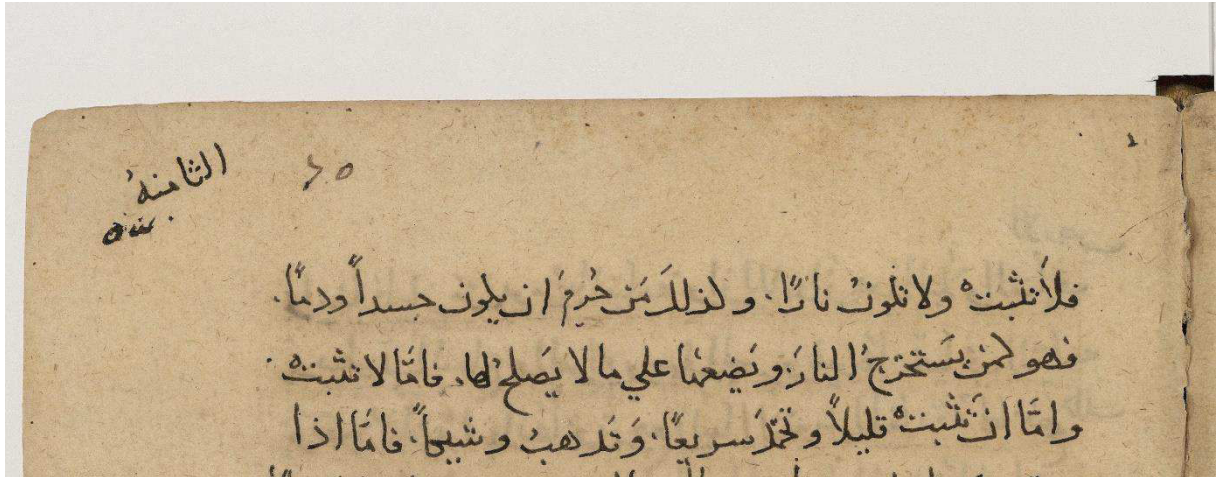 الثامنة
٢٥
فلا تثبت ولا تكون نارًا. ولذلك مَن حُرِمَ ان يكون جسداً ودمًا.
فهو كمن يَستخرجُ النارَ. ويَضعُها علي ما لا يَصلحُ لها. فامّا لا تثبت.
وامّا ان تَثبت قليلاً وتخمدَ سريعًا. وتَذهبُ وشيكاً. فامّا اذا